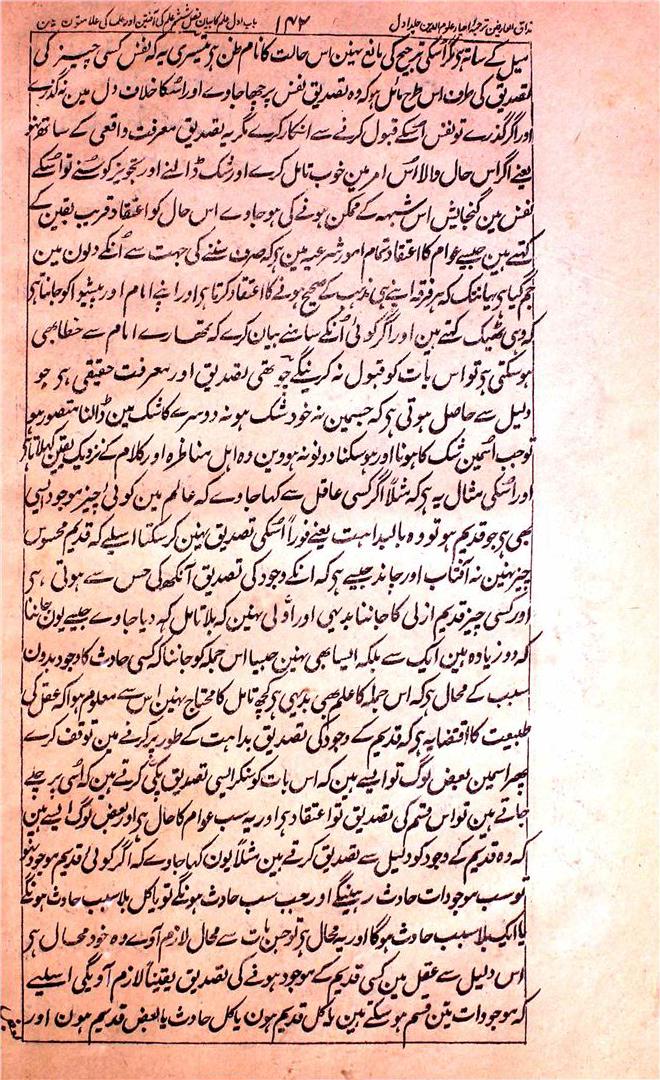 مذاق العارفین ترجمہ احیاء علوم الدین جلد اول ۱۴۲ باب اول علم کا بیان فصل ششم علم کی آفتیں اور علما کی علامتوں
میل کے ساتھ ہی مگر اسکی ترجیح کی مانع نہین اس حالت کا نام ظن ہی تیسری یہ کہ نفس کسی چیز کی
تصدیق کی طرف اس طرح مائل ہو کہ وہ تصدیق نفس پر چھا جاوے اور اسکا خلاف دل مین نہ گذرے
اور اگر گذرے تو نفس اسکے قبول کرنے سے انکار کرے مگر یہ تصدیق معرفت واقعی کے ساتھ نہو
یعنے اگر اس حال والا اس امر مین خوب تامل کرے اور شک ڈالنے اور تجویز کو سنے تو اسکے
نفس مین گنجایش اس شبہہ کے ممکن ہونے کی ہو جاوے اس حال کو اعتقاد قریب یقین کے
کہتے ہین جیسے عوام کا اعتقاد تمام امور شرعیہ مین ہی کہ صرف سننے کی جہت سے انکے دلون مین
جم گیا ہی یہانتک کہ ہر فرقہ اپنے ہی مذہب کے صحیح ہونے کا اعتقاد کرتا ہی اور اپنے امام اور پیشوا کو جانتا ہی
کہ وہی ٹھیک کہتے ہین اور اگر کوئی انکے سامنے بیان کرے کہ تمھارے امام سے خطا بھی
ہو سکتی ہی تو اس بات کو قبول نہ کرینگے چوتھی تصدیق اور معرفت حقیقی ہی جو
دلیل سے حاصل ہوتی ہی کہ جسمین نہ خود شک ہو نہ دوسرے کا شک مین ڈالنا متصور ہو
تو جب اسمین شک کا ہونا اور ہو سکنا دونو نہ ہووین وہ اہل مناظرہ اور کلام کے نزدیک یقین کہلاتا ہی
اور اسکی مثال یہ ہی کہ مثلاً اگر کسی عاقل سے کہا جاوے کہ عالم مین کوئی چیز موجود ایسی
بھی ہی جو قدیم ہو تو وہ بالبداہت یعنے فوراً اسکی تصدیق نہین کر سکتا اسلیے کہ قدیم محسوس
چیز نہین نہ آفتاب اور چاند جیسے ہی کہ انکے وجود کی تصدیق آنکھ کی حس سے ہوتی ہی
اور کسی چیز قدیم ازلی کا جاننا بدیہی اور اولی نہین کہ بلا تامل کہہ دیا جاوے جیسے یون جاننا
کہ دو زیادہ ہین ایک سے بلکہ ایسا بھی نہین جیسا اس جملہ کو جاننا کہ کسی حادث کا وجود بدون
سبب کے محال ہی کہ اس جملہ کا علم بھی بدیہی ہی کچھ تامل کا محتاج نہین اس سے معلوم ہوا کہ عقل کی
طبیعت کا اقتضا یہ ہی کہ قدیم کے وجود کی تصدیق بداہت کے طور پر کرنے مین توقف کرے
پھر اسمین بعض لوگ تو ایسے ہین کہ اس بات کو سنکر ایسی تصدیق پکی کرتے ہین کہ اسی پر جمے
جاتے ہین تو اس قسم کی تصدیق تو اعتقاد ہی اور یہ سب عوام کا حال ہی اور بعض لوگ ایسے ہین
کہ وہ قدیم کے وجود کو دلیل سے تصدیق کرتے ہین مثلاً یون کہا جاوے کہ اگر کوئی قدیم موجود نہو
تو سب موجودات حادث رہینگے اور جب سب حادث ہونگے تو یا کل بلا سبب حادث ہونگے
یا ایک بلا سبب حادث ہوگا اور یہ محال ہی تو جس بات سے محال لازم آوے وہ خود محال ہی
اس دلیل سے عقل مین کسی قدیم کے موجود ہونے کی تصدیق یقیناً لازم آویگی اسلیے
کہ موجودات تین قسم ہو سکتے ہین یا کل قدیم ہون یا کل حادث یا بعض قدیم ہون اور
بعض